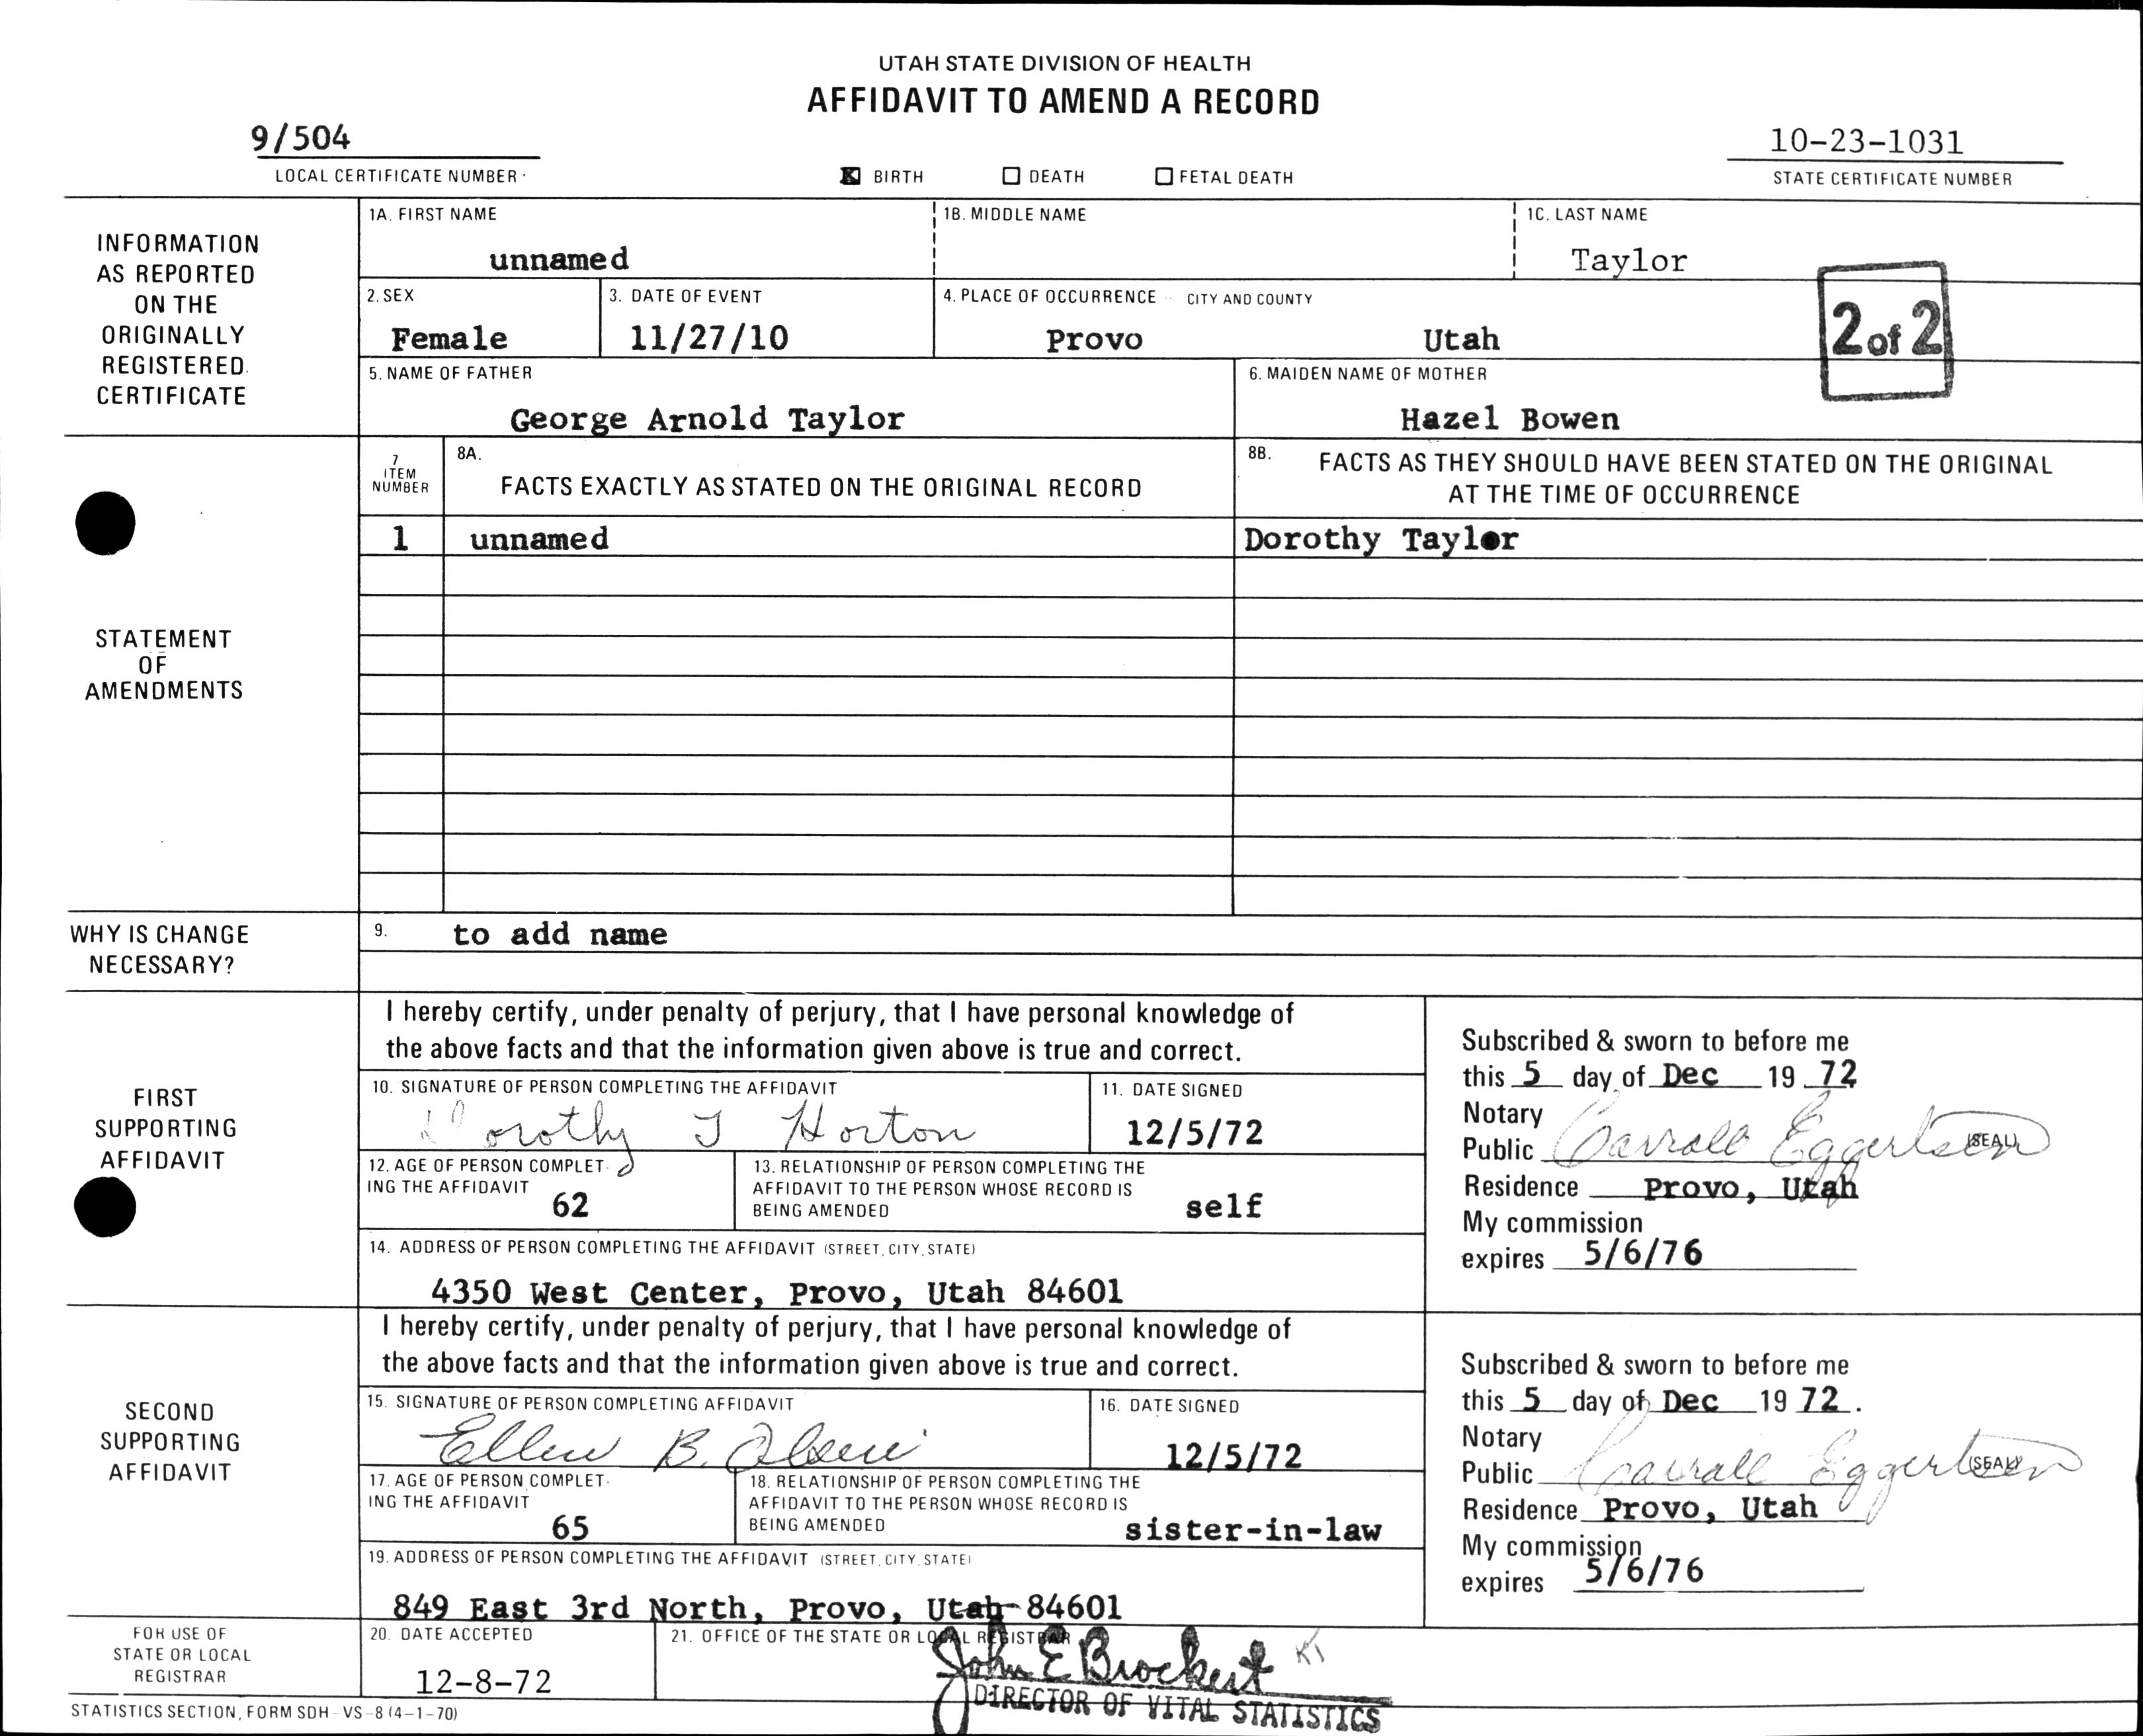 UTAH STATE DIVISION OF HEALTH
AFFIDAVIT TO AMEND A RECORD
9/504
LOCAL CERTIFICATE NUMBER
BIRTH DEATH FETAL DEATH
10-23-1031
STATE CERTIFICATE NUMBER
INFORMATION
AS REPORTED
ON THE
ORIGINALLY
REGISTERED
CERTIFICATE
1A. FIRST NAME
unnamed
1B. MIDDLE NAME
1C. LAST NAME
Taylor
2. SEX
Female
3. DATE OF EVENT
11/27/10
4. PLACE OF OCCURRENCE CITY AND COUNTY
Provo Utah
2 of 2
5. NAME OF FATHER
George Arnold Taylor
6. MAIDEN NAME OF MOTHER
Hazel Bowen
STATEMENT
OF
AMENDMENTS
7
ITEM
NUMBER
8A.
FACTS EXACTLY AS STATED ON THE ORIGINAL RECORD
8B. FACTS AS THEY SHOULD HAVE BEEN STATED ON THE ORIGINAL
AT THE TIME OF OCCURRENCE
1 unnamed Dorothy Taylor
WHY IS CHANGE
NECESSARY?
9. to add name
FIRST
SUPPORTING
AFFIDAVIT
I hereby certify, under penalty of perjury, that I have personal knowledge of
the above facts and that the information given above is true and correct.
10. SIGNATURE OF PERSON COMPLETING THE AFFIDAVIT
Dorothy T Horton
11. DATE SIGNED
12/5/72
12. AGE OF PERSON COMPLET-
ING THE AFFIDAVIT
62
13. RELATIONSHIP OF PERSON COMPLETING THE
AFFIDAVIT TO THE PERSON WHOSE RECORD IS
BEING AMENDED
self
14. ADDRESS OF PERSON COMPLETING THE AFFIDAVIT (STREET, CITY, STATE)
4350 West Center, Provo, Utah 84601
Subscribed & sworn to before me
this 5 day of Dec 19 72
Notary
Public Carroll Eggertsen (SEAL)
Residence Provo, Utah
My commission
expires 5/6/76
SECOND
SUPPORTING
AFFIDAVIT
I hereby certify, under penalty of perjury, that I have personal knowledge of
the above facts and that the information given above is true and correct.
15. SIGNATURE OF PERSON COMPLETING AFFIDAVIT
Ellen B.
16. DATE SIGNED
12/5/72
17. AGE OF PERSON COMPLET-
ING THE AFFIDAVIT
65
18. RELATIONSHIP OF PERSON COMPLETING THE
AFFIDAVIT TO THE PERSON WHOSE RECORD IS
BEING AMENDED
sister-in-law
19. ADDRESS OF PERSON COMPLETING THE AFFIDAVIT (STREET, CITY, STATE)
849 East 3rd North, Provo, Utah 84601
Subscribed & sworn to before me
this 5 day of Dec 19 72.
Notary
Public Carroll Eggertsen (SEAL)
Residence Provo, Utah
My commission
expires 5/6/76
FOR USE OF
STATE OR LOCAL
REGISTRAR
20. DATE ACCEPTED
12-8-72
21. OFFICE OF THE STATE OR LOCAL REGISTRAR
John E Brockert
DIRECTOR OF VITAL STATISTICS
STATISTICS SECTION, FORM SDH-VS-8 (4-1-70)